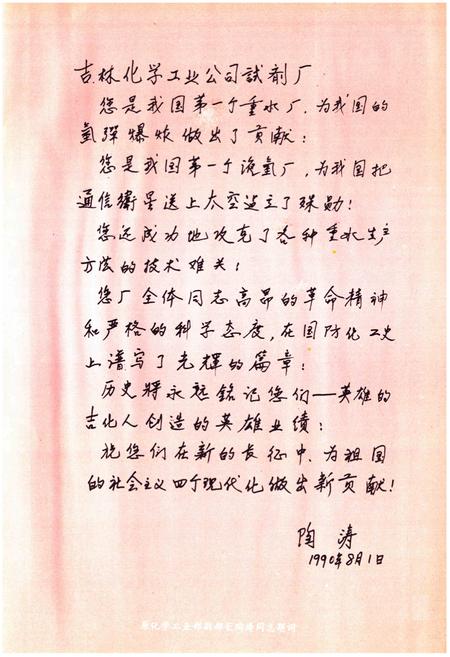 吉林化学工业公司试剂厂
您是我国第一个重水厂,为我国的
氢弹爆炸做出了贡献;
您是我国第一个液氢厂,为我国把
通信衛星送上太空建立了殊勋!
您还成功地攻克了各种重水生产
方法的技术难关;
您厂全体同志高昂的革命精神
和严格的科学态度,在国防化工史
上谱写了光辉的篇章;
历史将永远铭记您们——英雄的
吉化人创造的英雄业绩;
祝您们在新的长征中,为祖国
的社会主义四个现代化做出新贡献!
陶涛
1990年8月1日
原化学工业部副部长陶涛同志题词